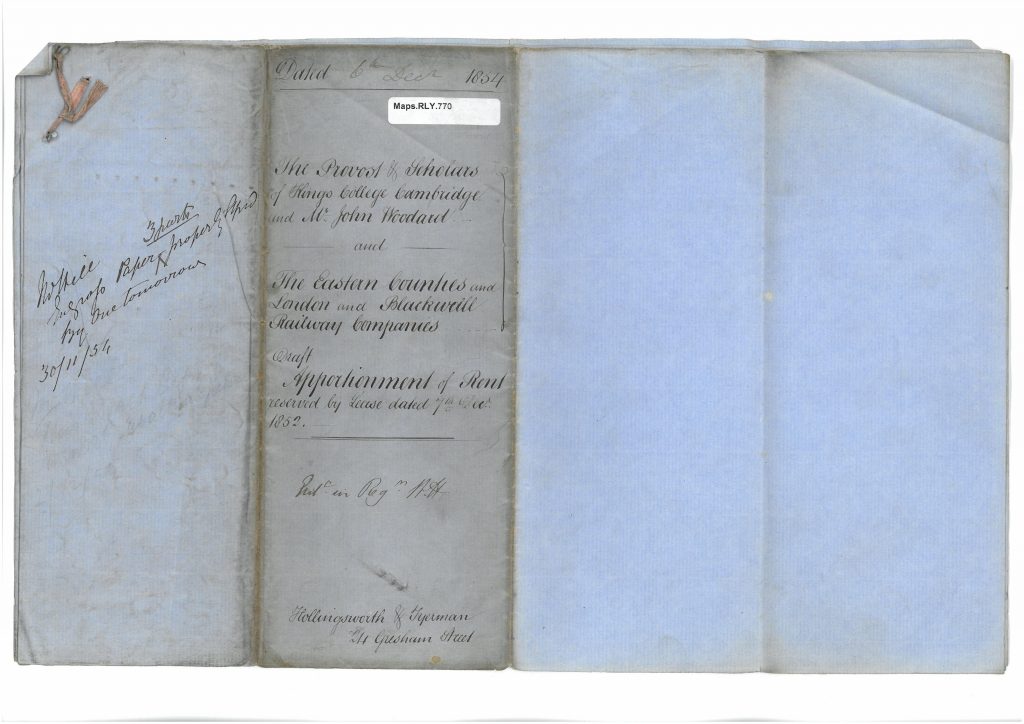 3 parts
Engross Paper properly Stpd
By One tomorrow
30/11/54
Dated 6th Decr 1854
Maps.RLY.770
The Provost & Scholars
of Kings College Cambridge
and Mr. John Woodard
and
The Eastern Counties and
London and Blackwall
Railway Companies
Draft
Apportionment of Rent
reserved by Lease dated 7th Decr.
1852.
in Regr
Hollingsworth & Tyerman
24 Gresham Street